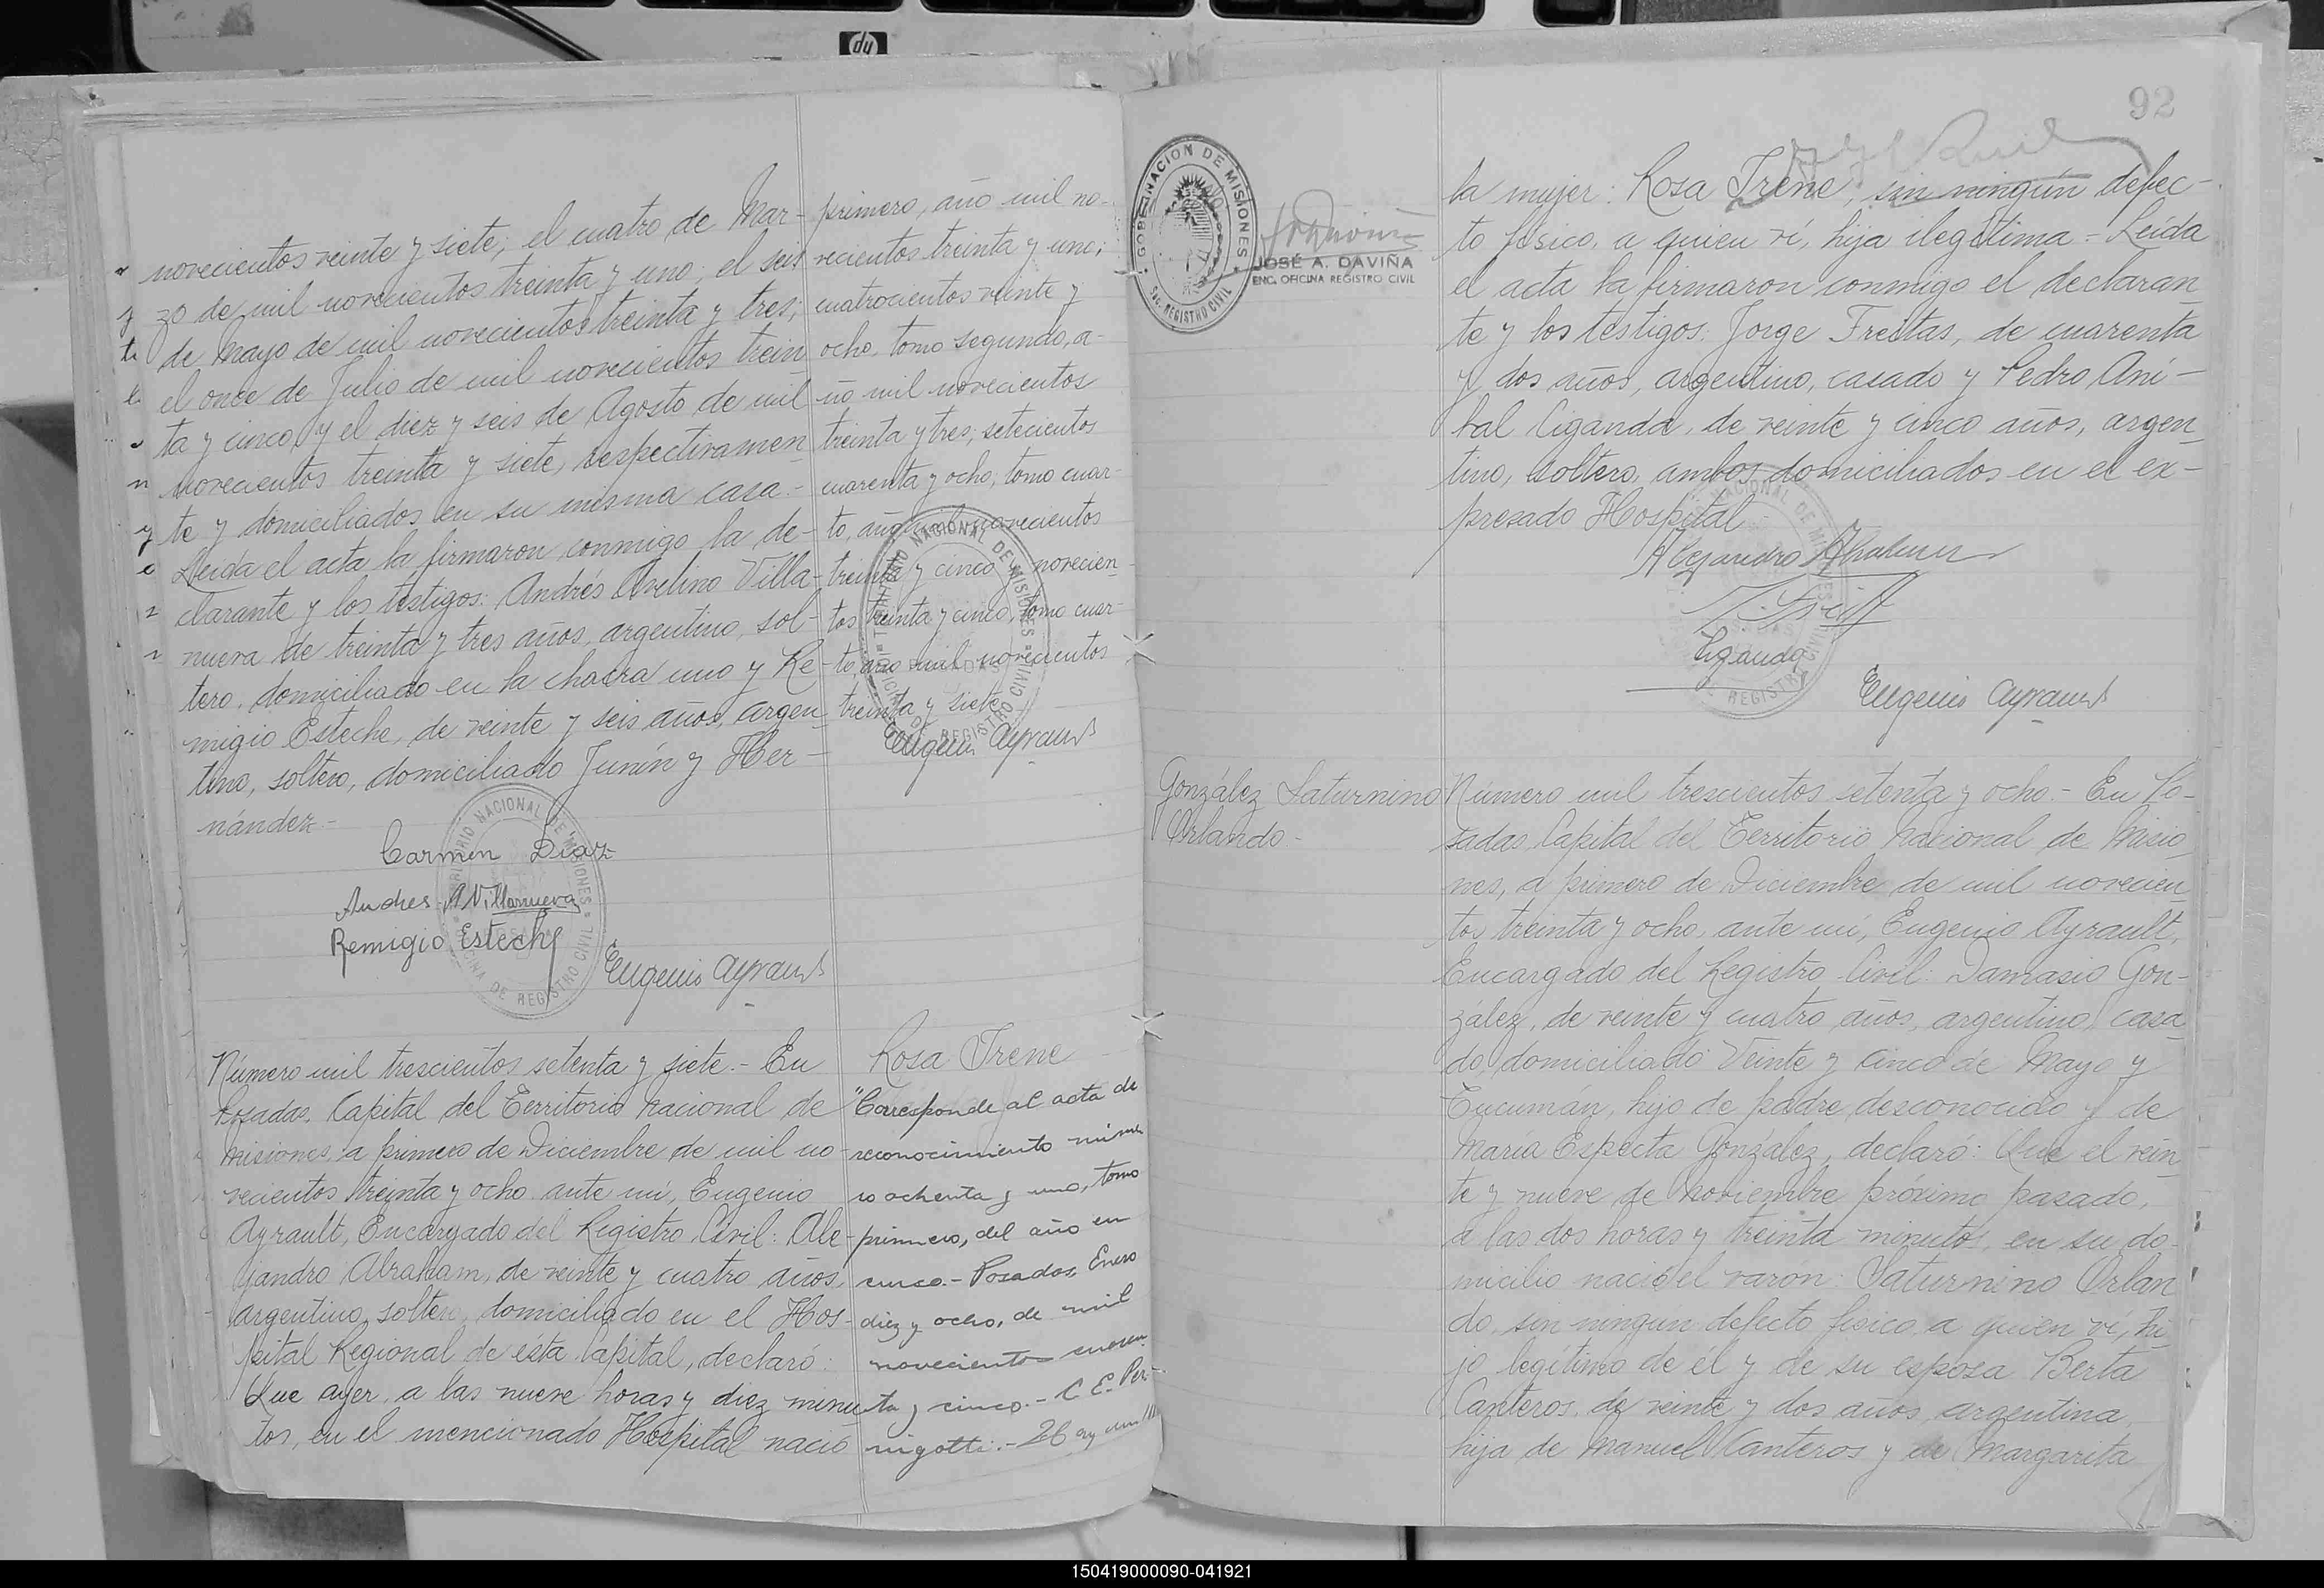 novecientos veinte y siete; el cuatro de Mar-
zo de mil novecientos treinta y uno; el seis
de Mayo de mil novecientos treinta y tres;
el once de Julio de mil novecientos trein
ta y cinco y el diez y seis de Agosto de mil
novecientos treinta y siete, respectivamen
te y domiciliados en su misma casa.-
Leída el acta la firmaron conmigo la de-
clarante y los testigos: Andrés Avelino Villa-
nueva de treinta y tres años, argentino, sol-
tero, domiciliado en la chacra uno y Re-
migio Esteche, de veinte y seis años, argen
tino, soltero, domiciliado Junín y Her-
nández.-
primero, año mil no-
vecientos treinta y uno;
cuatrocientos veinte y
ocho, tomo segundo, a-
ño mil novecientos
treinta y tres; setecientos
cuarenta y ocho; tomo cuar-
to, año mil novecientos
treinta y cinco y novecien-
tos treinta y cinco, tomo cuar-
to, año mil novecientos
treinta y siete
Eugenio Ayrault
Carmen Díaz
Andres A Villanueva
Remigio Esteche
Eugenio Ayrault
TERRITORIO NACIONAL DE MISIONES
OFICINA DE REGISTRO CIVIL
Número mil trescientos setenta y siete.- En
Posadas, Capital del Territorio Nacional de
Misiones, a primero de Diciembre de mil no-
vecientos treinta y ocho ante mí, Eugenio
Ayrault, Encargado del Registro Civil: Ale-
jandro Abraham, de veinte y cuatro años,
argentino, soltero, domiciliado en el Hos-
pital Regional de ésta Capital, declaró:
Que ayer, a las nueve horas y diez minu
tos, en el mencionado Hospital nació
Rosa Irene
"Corresponde al acta de
reconocimiento núme
ro ochenta y uno, tomo
primero, del año en
curso.- Posadas, Enero
diez y ocho, de mil
novecientos cuaren
ta y cinco.- C. E. Per-
nigotti.-
92
GOBERNACION DE MISIONES
SEC. REGISTRO CIVIL
JOSÉ A. DAVIÑA
ENC. OFICINA REGISTRO CIVIL
la mujer: Rosa Irene, sin ningún defec-
to físico, a quien ví, hija ilegítima.- Leída
el acta la firmaron conmigo el declaran
te y los testigos: Jorge Freitas, de cuarenta
y dos años, argentino, casado y Pedro Aní-
bal Ciganda, de veinte y cinco años, argen
tino, soltero, ambos domiciliados en el ex-
presado Hospital
Alejandro Abraham
Ciganda
Eugenio Ayrault
González Saturnino
Orlando.-
Número mil trescientos setenta y ocho.- En Po-
sadas, Capital del Territorio Nacional de Misio
nes, a primero de Diciembre de mil novecien
tos treinta y ocho, ante mí, Eugenio Ayrault,
Encargado del Registro Civil: Damasio Gon-
zález, de veinte y cuatro años, argentino, casa
do, domiciliado Veinte y cinco de Mayo y
Tucumán, hijo de padre desconocido y de
María Especta González, declaró: Que el vein
te y nueve de Noviembre próximo pasado,
a las dos horas y treinta minutos, en su do-
micilio nació el varon: Saturnino Orlan
do, sin ningún defecto físico a quien ví, hi
jo legítimo de él y de su esposa Berta
Canteros, de veinte y dos años, argentina,
hija de Manuel Canteros y de Margarita
150419000090-041921